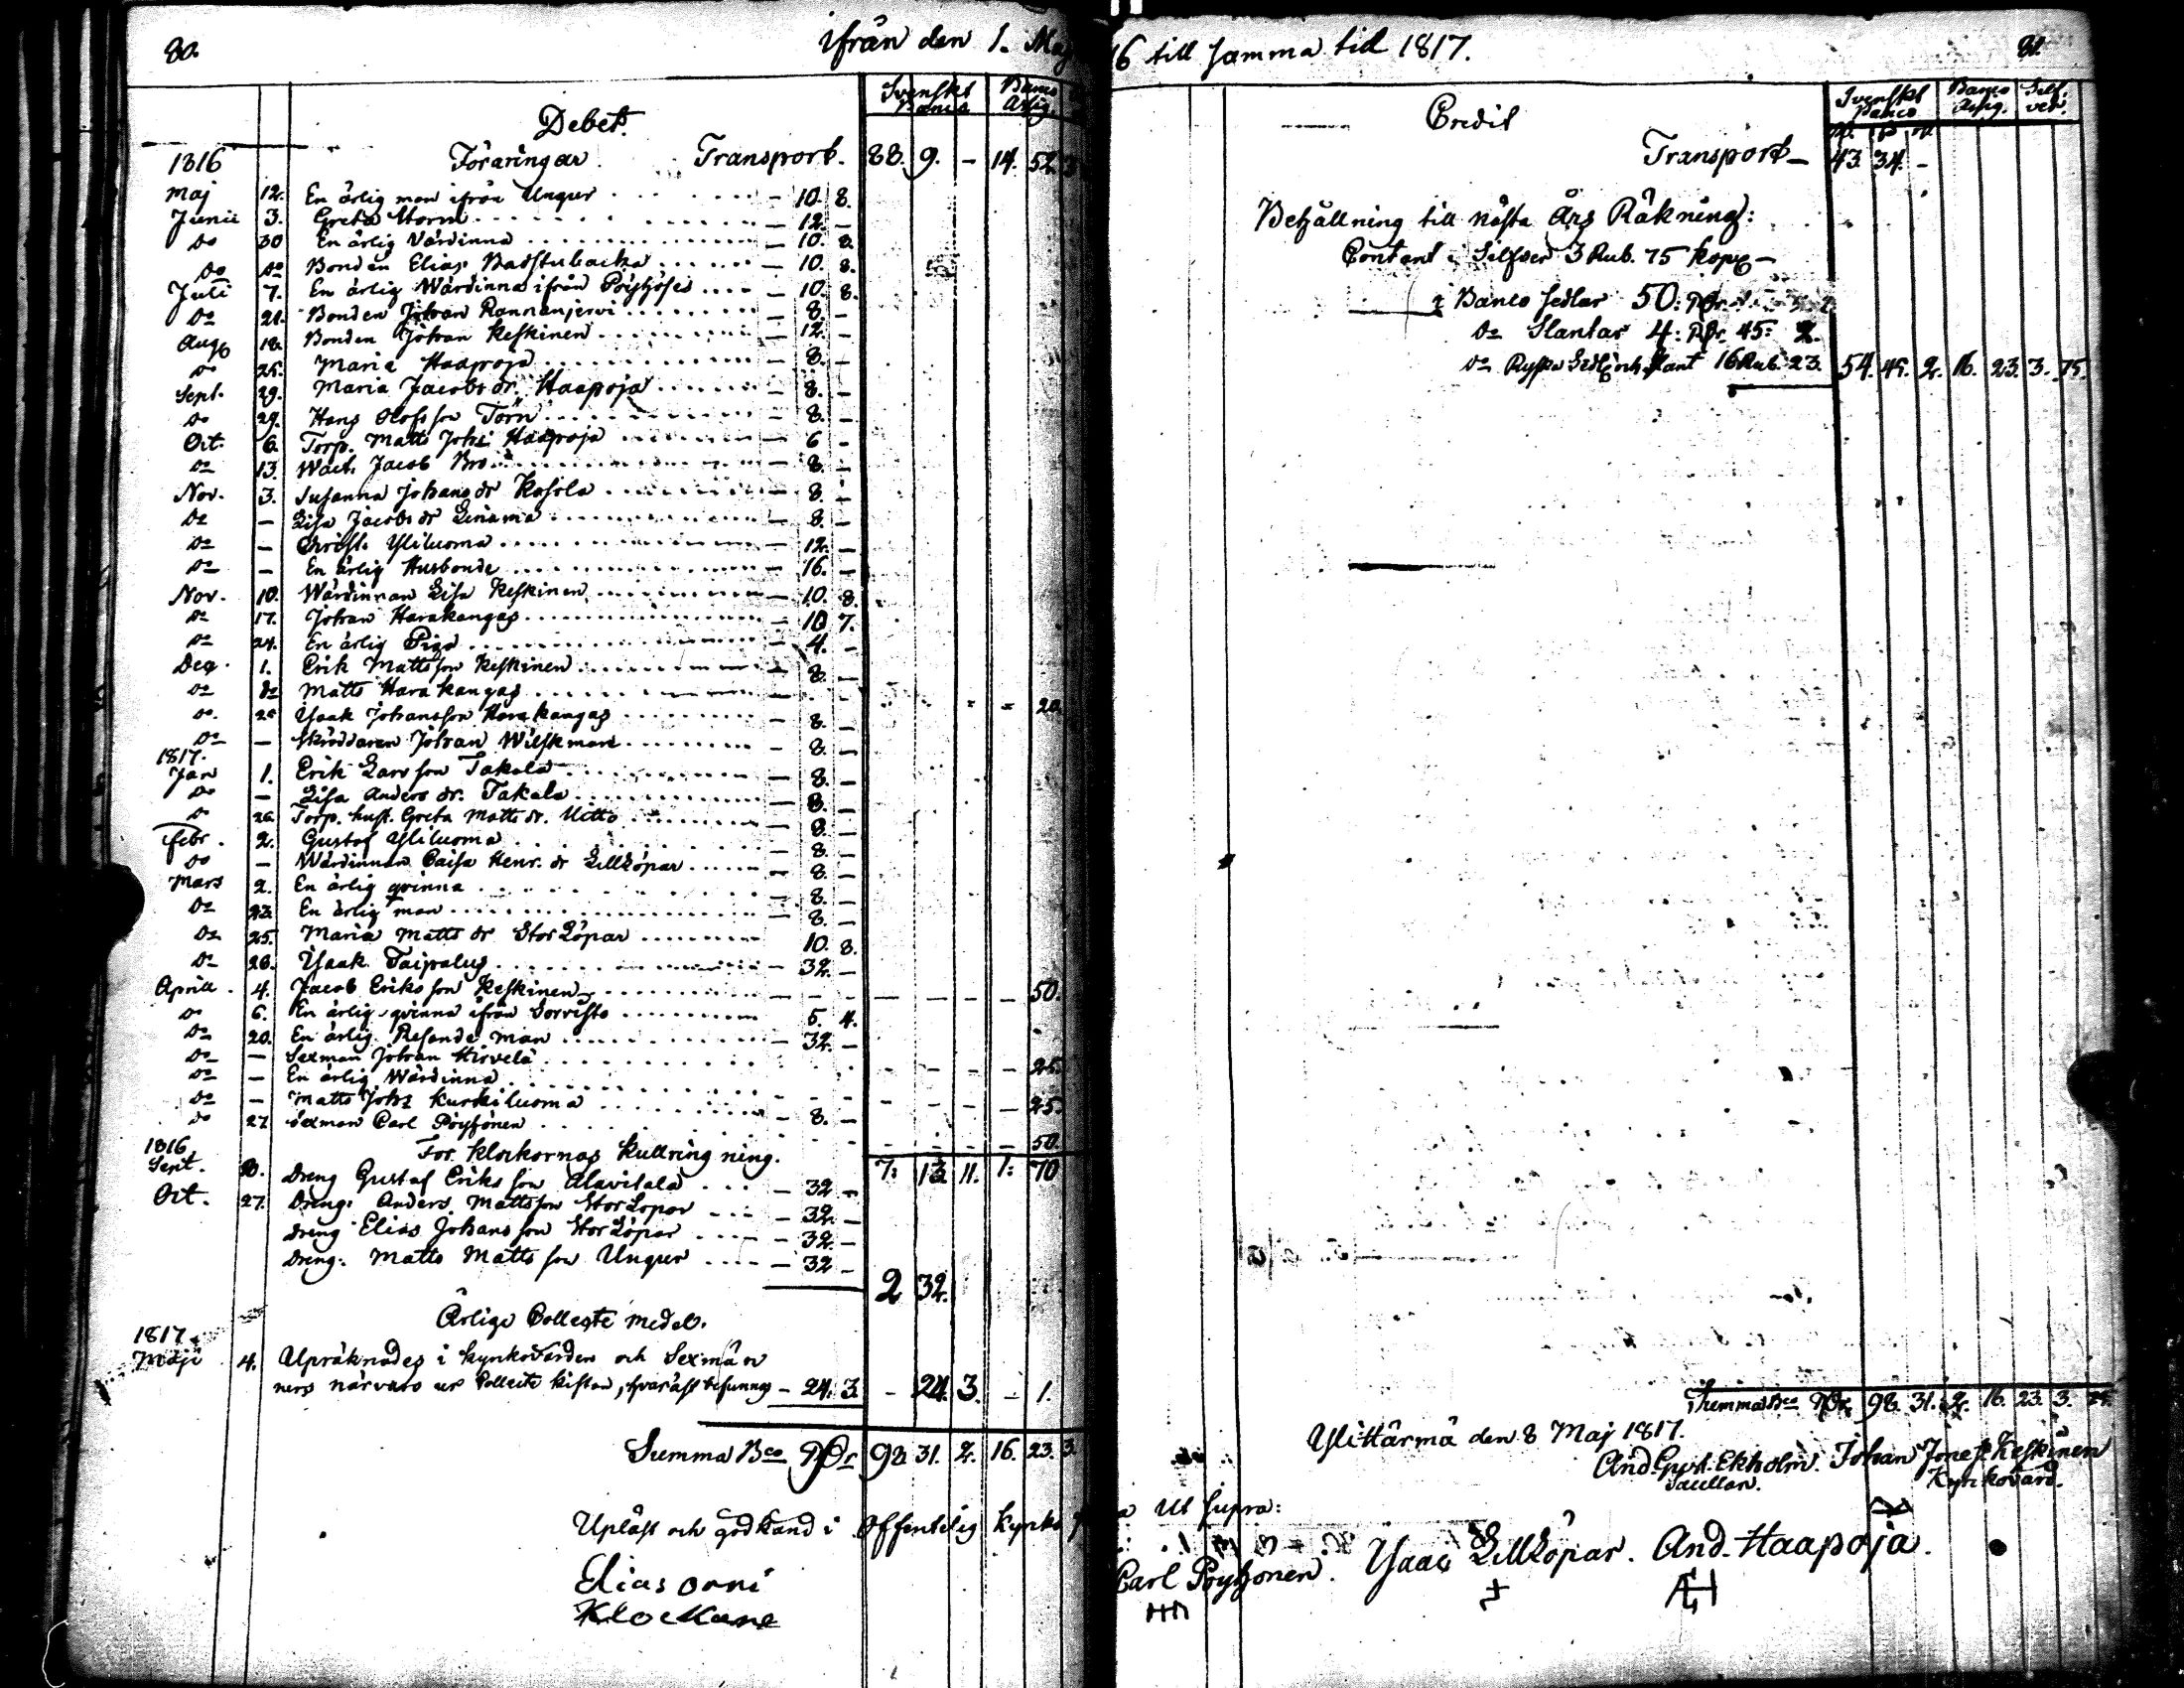 80.
ifrån den 1. Maj
Svenskt Banco
Banco Assig.
Debet.
1816 Föräringar. Transport. 88. 9. - 14. 52 3
Maj 12. En ärlig man ifrån Ungur - 10. 8.
Junii 3. Greta Storm - 12. -
do 30 En ärlig Värdinna - 10. 8.
do do Bonden Elias Badstubacka - 10. 8.
Juli 7. En ärlig Wärdinna ifrån - 10. 8.
do 21. Bonden Johan Rannanjervi - 8. -
Aug 18. Bonden Johan Keskinen - 12. -
do 25. Maria Haapoja - 8. -
Sept. 29. Maria Jacobs dr. Haapoja - 8. -
do 29. Hans Olofsson Törn - 8. -
Oct. 6. Torp. Matts Johs Haapoja - 6 -
do 13. Jacob Bro - 8. -
Nov. 3. Susanna Johans dr Kosola - 8. -
do - Lisa Jacobs dr - 8. -
do - Christ. Yliluoma - 12. -
do - En ärlig Husbonde - 16. -
Nov. 10. Wärdinnan Lisa Keskinen - 10. 8.
do 17. Johan Harakangas - 10 7.
do 24. En ärlig Piga - 4. -
Dec. 1. Erik Mattsson Keskinen - 8. -
do do Matts Harakangas - 20.
do 26 Isaak Johansson Harakangas - 8. -
do - Skräddaren Johan Wilskman - 8. -
1817.
Jan 1. Erik Larsson Takala - 8. -
do - Lisa Anders dr. Takala - 8. -
do 26. Torp. hust. Greta Matts dr. - 8. -
Febr. 2. Gustaf Yliluoma - 8. -
do - Wärdinnan Caisa Henr. dr Lillköpar - 8. -
Mars 2. En ärlig qvinna - 8. -
do 23. En ärlig man - 8. -
do 25. Maria Matts dr StorLöpar 10. 8.
do 28. Isaak Taipalus - 32. -
Aprill 4. Jacob Eriksson Keskinen - - - - 50.
do 6. En ärlig qvinna ifrån 5. 4.
do 20. En ärlig Resande man - 32. -
do - Sexman Johan Hirvelä - - - 25.
do - En ärlig Wärdinna - - - 25.
do - Matts Johs Kurkiluoma - 8. -
do 27 Sexman Carl Pöyhönen - - - 50.
1816 För klockornas kullringning. 7: 13 11. 1: 70
Sept. Dreng Gustaf Eriksson Alavitala - 32 -
Oct. 27. Dreng. Anders Mattsson StorLöpar - 32 -
Dreng Elias Johansson StorLöpar - 32 -
Dreng. Matts Mattsson Ungur - 32 -
2 32.
Ärlige Collecte medel.
1817.
Maji 4. Upräknades i kyrkovärden och Sexmän
ners närvaro ur Collecte kistan, hvaräst befunnes - 24. 3. - 24. 3. - 1.
Summa Bco Rdr 98. 31. 2. 16. 23. 3.
Upläst och godkänd i offentelig kyrko
Elias Orni
Klockare
16 till samma tid 1817.
81.
Svenskt Banco
Banco Assig.
Silfver.
Credit
Transport - 43. 34. -
Behållning till nästa Års Räkning:
Contant i Silfver 3 Rub. 75 kop -
i Banco sedlar 50: Rdr
do Slantar 4: Rdr. 45: 2.
do Ryska Sedl. och slant 16 Rub. 23. 54. 45. 2. 16. 23. 3. 75.
Summa Bco Rdr. 98. 31. 2. 16. 23. 3. 75.
Ylihärmä den 8 Maj 1817.
And. Gust. Ekholm. Johan Keskinen
Kyrkovärd.
Ut supra:
Carl Pöyhönen. Isaac Lillköpar. And. Haapoja.
AH